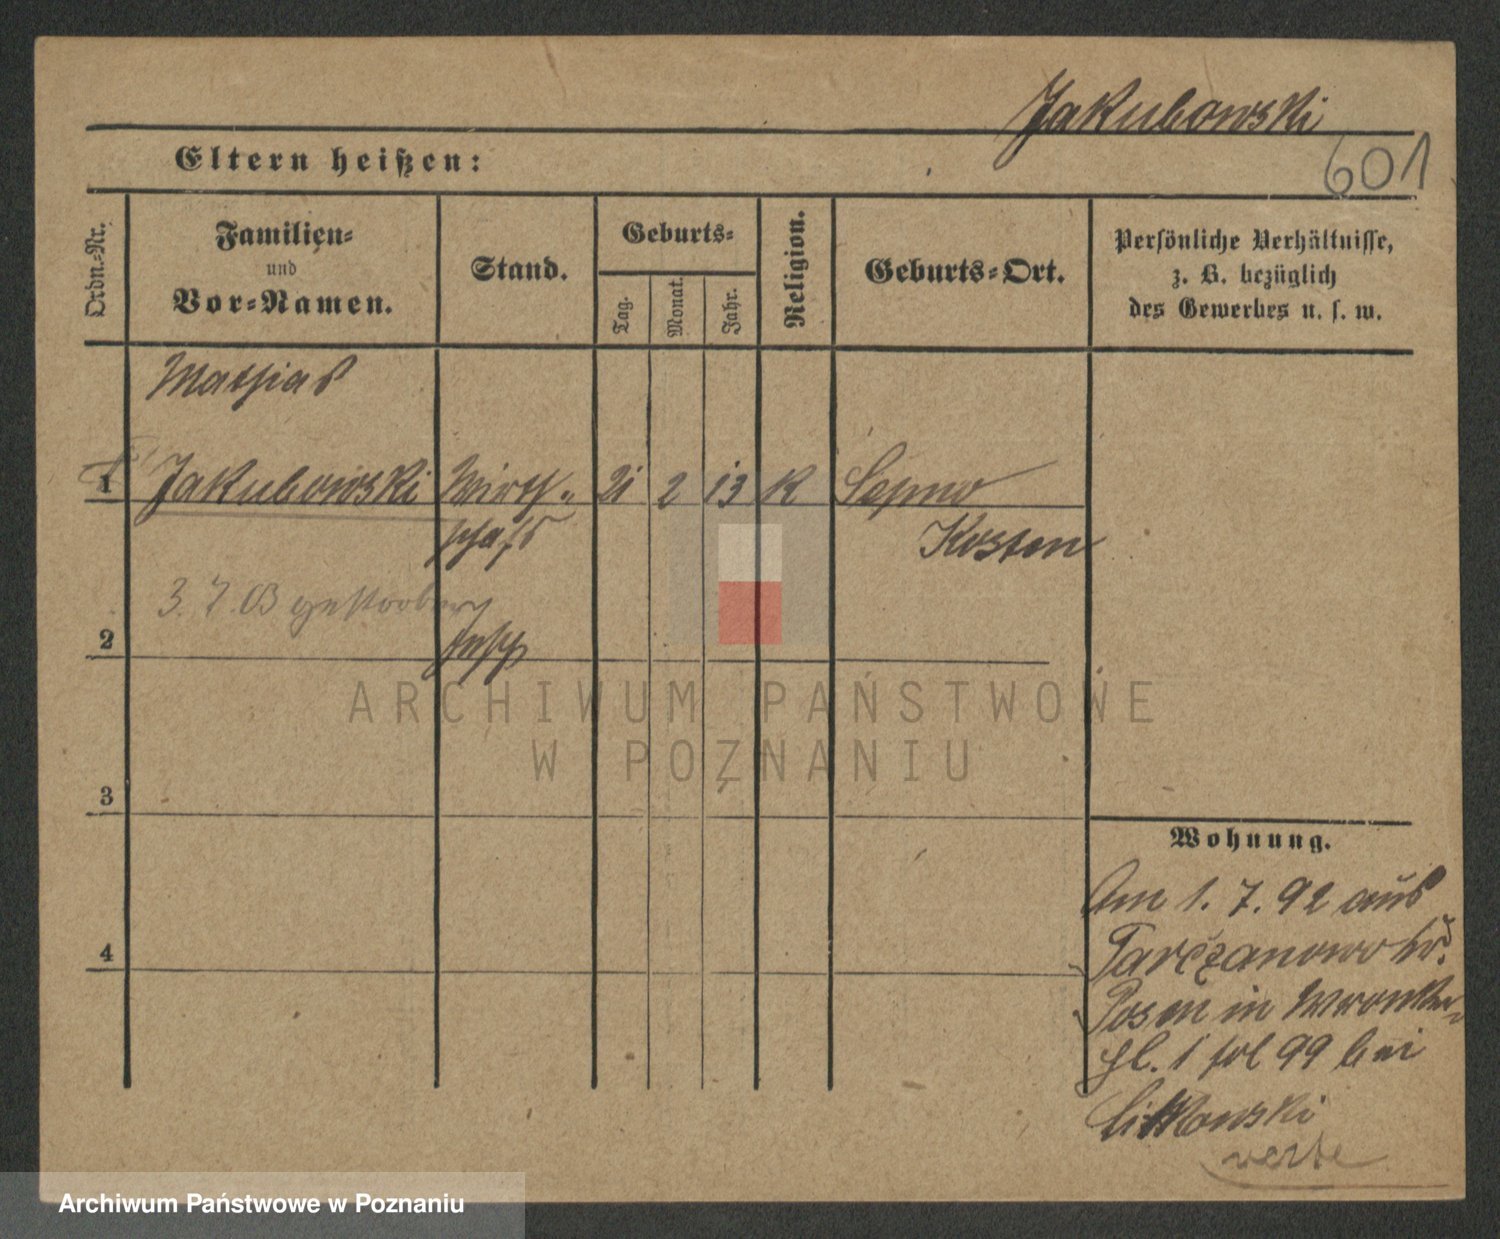 Jakubowski
601
Eltern heißen:
Ordn.-Nr.
Familien-
und
Vor-Namen.
Stand.
Geburts-
Tag.
Monat.
Jahr.
Religion.
Geburts-Ort.
Persönliche Verhältnisse,
z. B. bezüglich
des Gewerbes u. s. w.
Mathias
1 Jakubowski Wirth- 21 2 13 K Sepno
schafts
Kosten
3. 7. 03 gestorben
2
3
4
ARCHIWUM PAŃSTWOWE
W POZNANIU
Wohnung.
Am 1. 7. 92 aus
Tarczanowo Kr.
Posen in Wronker-
pl. 1 fol 99 bei
Litkowski
Archiwum Państwowe w Poznaniu